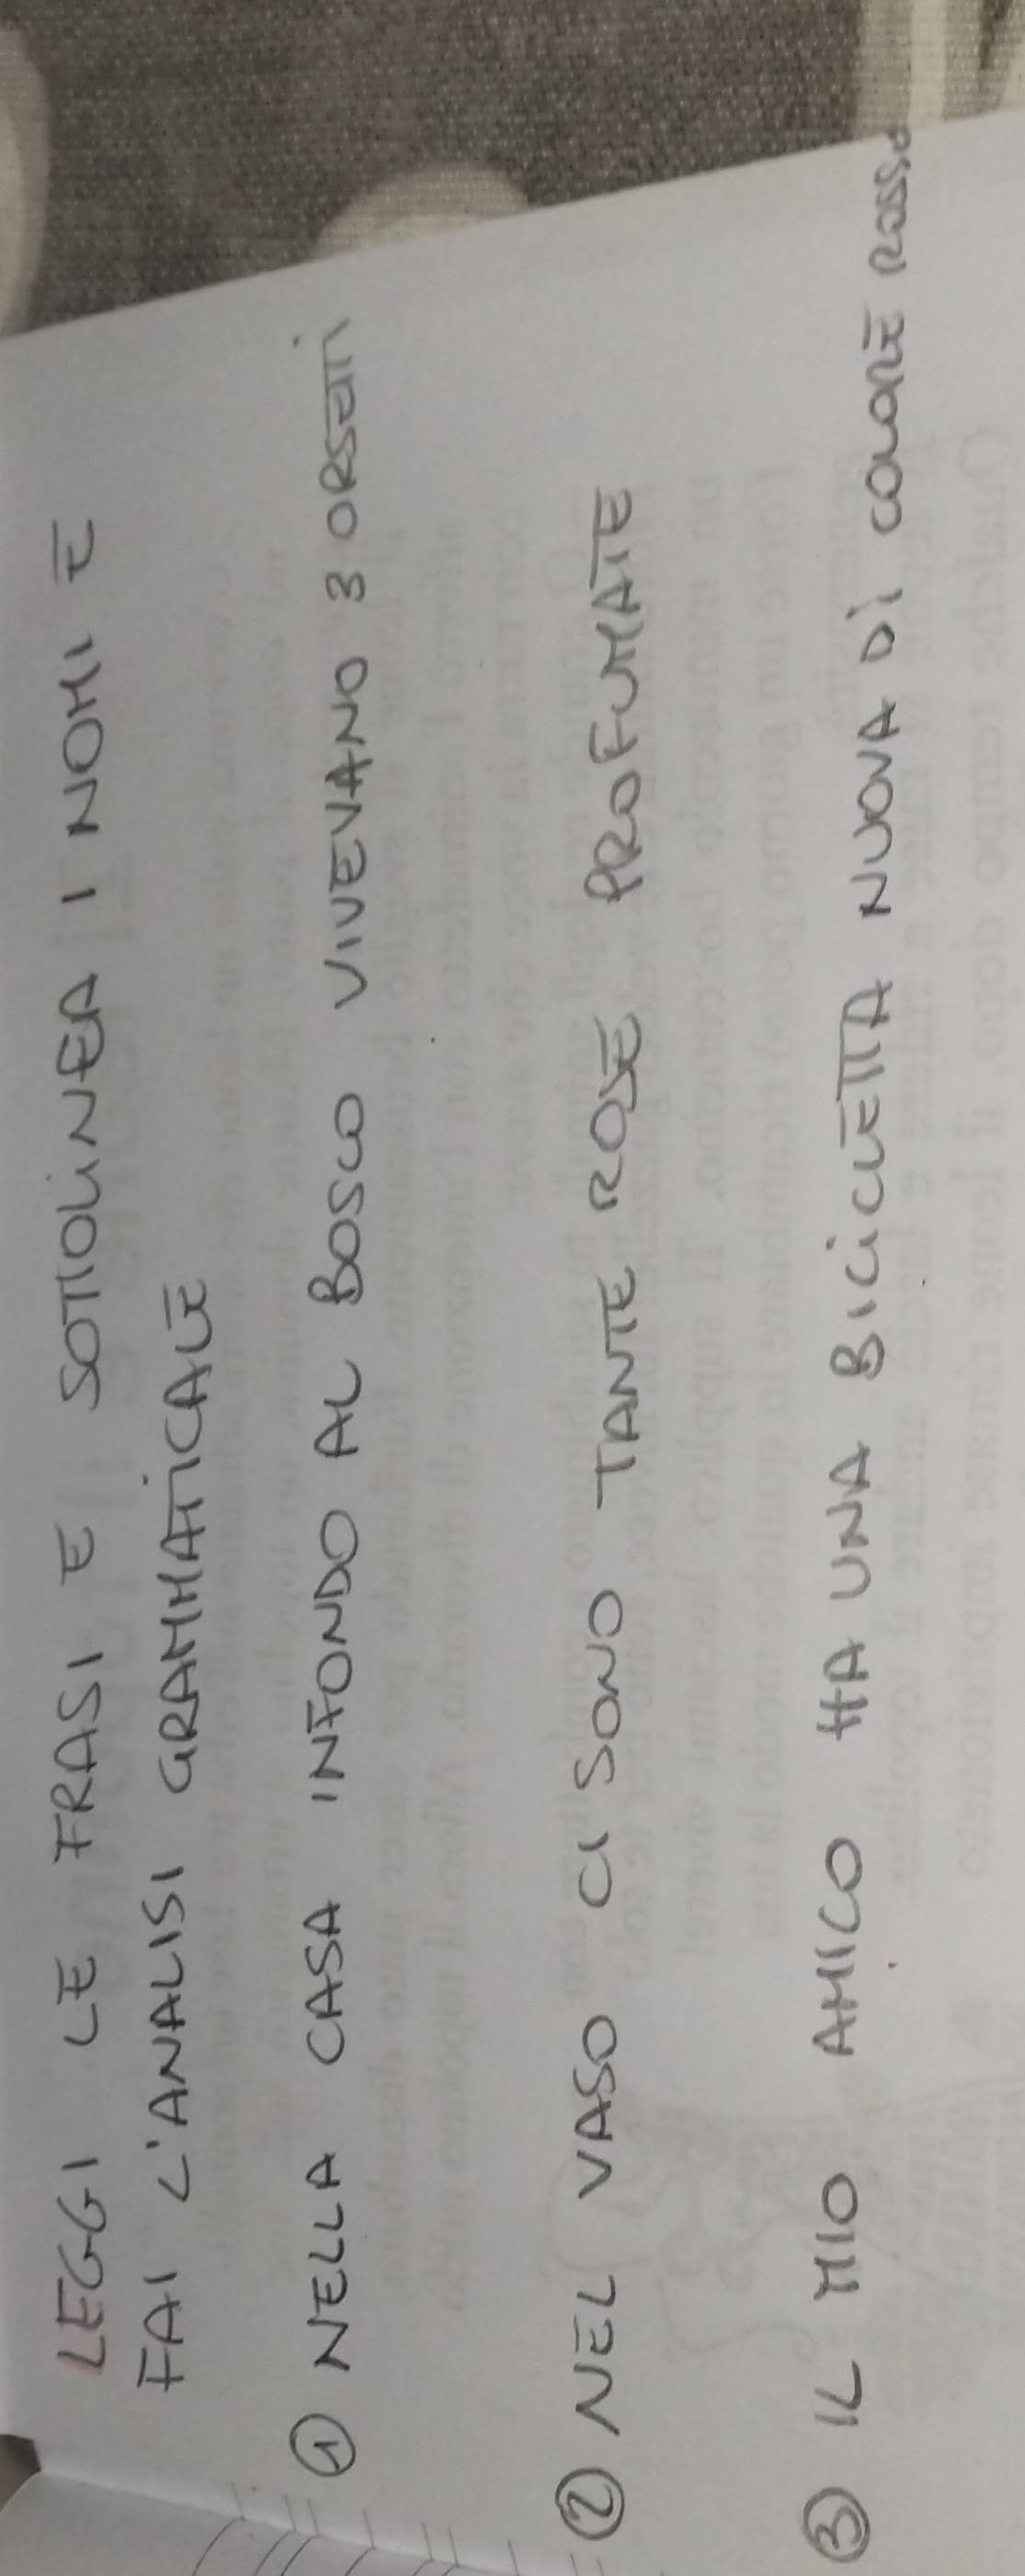 LEGGI LE FRASI E SOTTOLINEA I NOMI E
FAI L'ANALISI GRAMMATICALE
① NELLA CASA INFONDO AL BOSCO VIVEVANO 3 ORSETTI
② NEL VASO CI SONO TANTE ROSE PROFUMATE
③ IL MIO AMICO HA UNA BICICLETTA NUOVA DÌ COLORE ROSSO